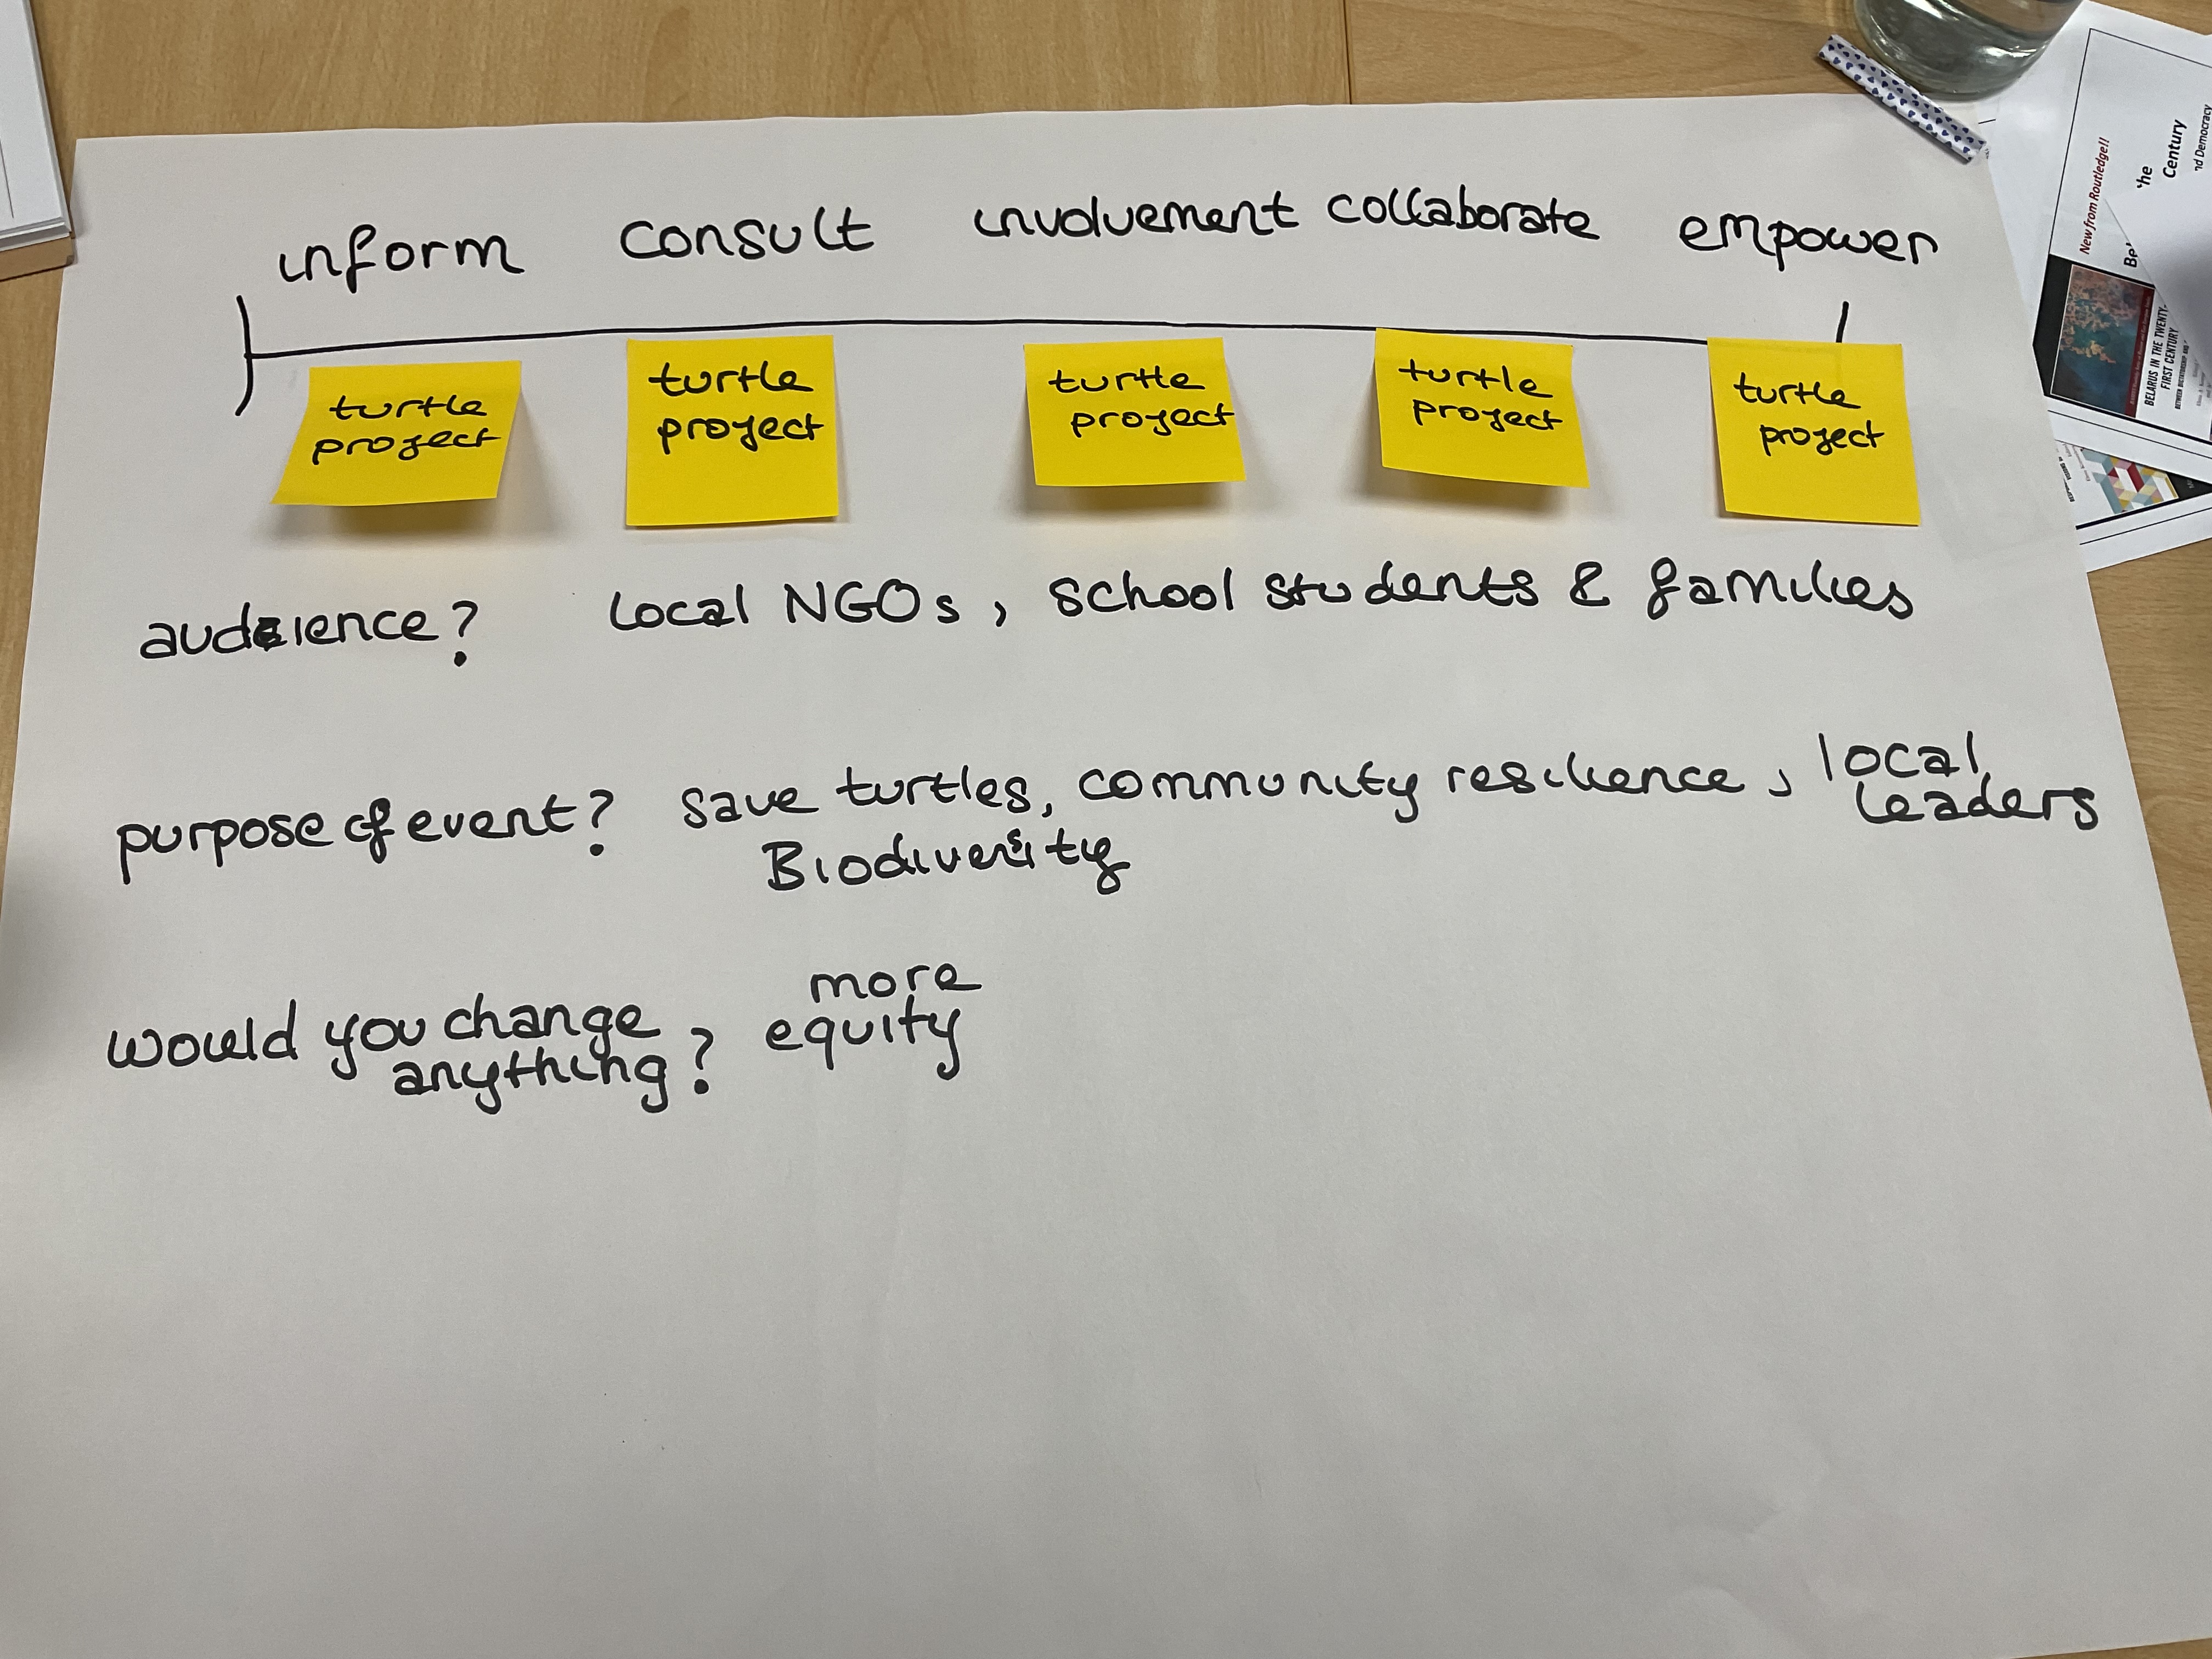 inform consult involvement collaborate empower
turtle
project
turtle
project
turtle
project
turtle
project
turtle
project
audience? local NGOs, school students & families
purpose of event? save turtles, community resilience, local
leaders
Biodiversity
would you change
anything? more
equity
New from Routledge!!
Century
BELARUS IN THE TWENTY-
FIRST CENTURY